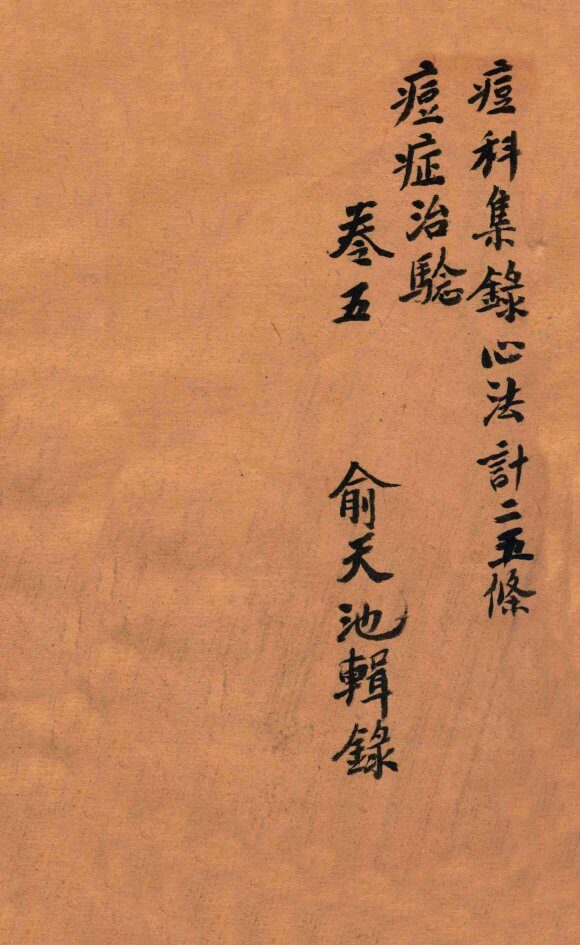 痘科集錄心法計二五條
痘症治驗
卷五 俞天池輯錄